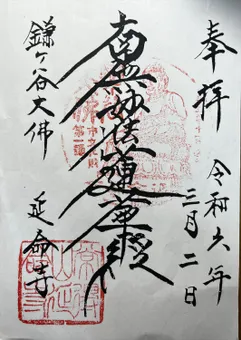 奉拝
令和六年
三月二日
南無妙法蓮華経
鎌ヶ谷大佛
延命寺